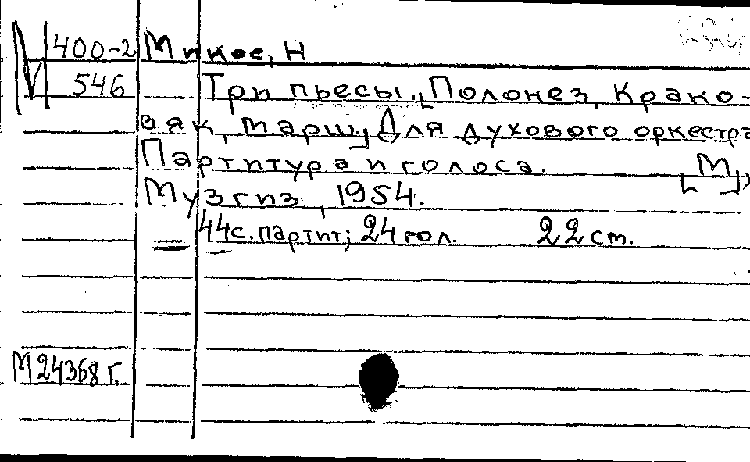 М 400-2 Микос, Н
546 Три пьесы. [Полонез, Крако-
вяк, марш] Для духового оркестра
Партитура и голоса. [М],
Музгиз, 1954.
44с. партит; 24 гол. 22 cm.
М 24368 г.